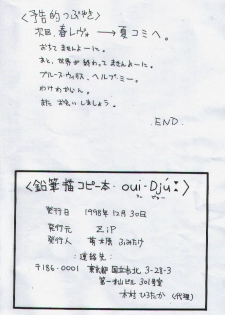 〈予告的つぶやき〉
次回、春レヴォ → 夏コミへ。
おちてませんよーに。
あと、世界が終わってませんよーに。
ブルース・ウィリス、ヘルプ・ミー。
わけわかんない。
また お会いしましょう。
.END.
〈鉛筆描コピー本・oui-Djú:〉
発行日 1998年12月30日
発行元 ZiP
発行人 ふみたけ
:連絡先:
〒186-0001 東京都国立市北 3-28-3
第一村山ビル 301号室
木村ひろたか (代理)